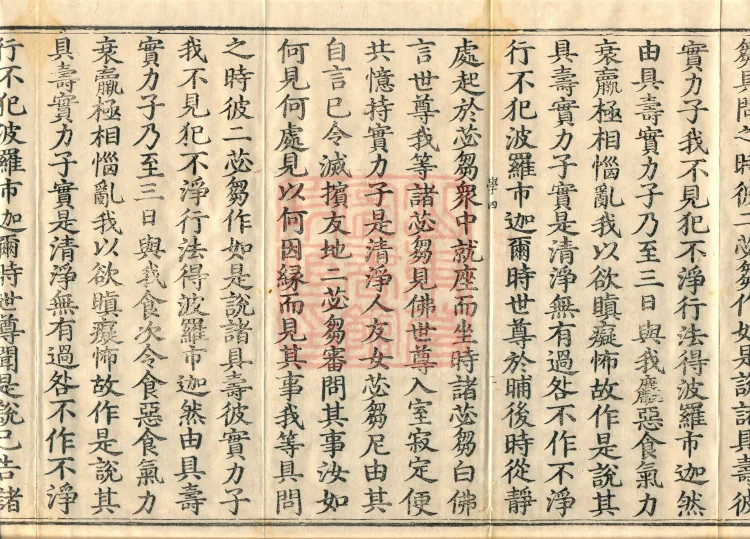 芻具問之時彼二苾芻作如是說諸具壽彼
實力子我不見犯不淨行法得波羅市迦然
由具壽實力子乃至三日與我麤惡食氣力
衰羸極相惱亂我以欲瞋癡怖故作是說其
具壽實力子實是清淨無有過咎不作不淨
行不犯波羅市迦爾時世尊於晡後時從靜
處起於苾芻衆中就座而坐時諸苾芻白佛
言世尊我等諸苾芻見佛世尊入室寂定便
共憶持實力子是清淨人友女苾芻尼由其
自言已令滅擯友地二苾芻審問其事汝如
何見何處見以何因緣而見其事我等具問
之時彼二苾芻作如是說諸具壽彼實力子
我不見犯不淨行法得波羅市迦然由具壽
實力子乃至三日與我食次令食惡食氣力
衰羸極相惱亂我以欲瞋癡怖故作是說其
具壽實力子實是清淨無有過咎不作不淨
行不犯波羅市迦爾時世尊聞是說已告諸